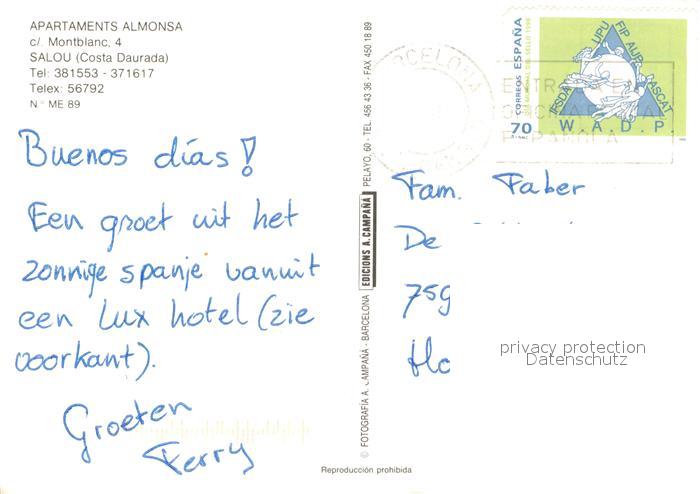 APARTAMENTS ALMONSA
c/. Montblanc, 4
SALOU (Costa Daurada)
Tel: 381553 - 371617
Telex: 56792
N.° ME 89
Buenos días!
Een groet uit het
zonnige spanje vanuit
een lux hotel (zie
voorkant).
Groeten
Ferry
© FOTOGRAFIA A. CAMPAÑA - BARCELONA EDICIONS A. CAMPAÑA PELAYO, 60 - TEL. 456 43 36 - FAX 450 18 89
Reproducción prohibida
CORREOS ESPAÑA
70
UPU
FIP
AIJP
ASCAT
IFSDA
W.A.D.P
Fam. Faber
De
759
Ho
privacy protection
Datenschutz